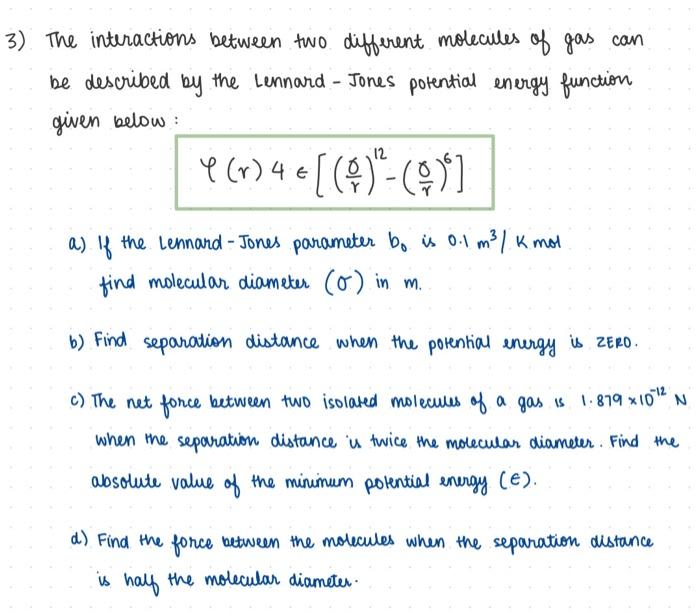 3) The interactions between two different molecules of gas can
be described by the Lennard - Jones potential energy function
given below :
φ (r) 4 ϵ [(σ/r)¹² - (σ/r)⁶]
a) If the Lennard - Jones parameter b₀ is 0.1 m³/ K mol
find molecular diameter (σ) in m.
b) Find separation distance when the potential energy is ZERO.
c) The net force between two isolated molecules of a gas is 1.879 × 10⁻¹² N
when the separation distance is twice the molecular diameter. Find the
absolute value of the minimum potential energy (ϵ).
d) Find the force between the molecules when the separation distance
is half the molecular diameter.